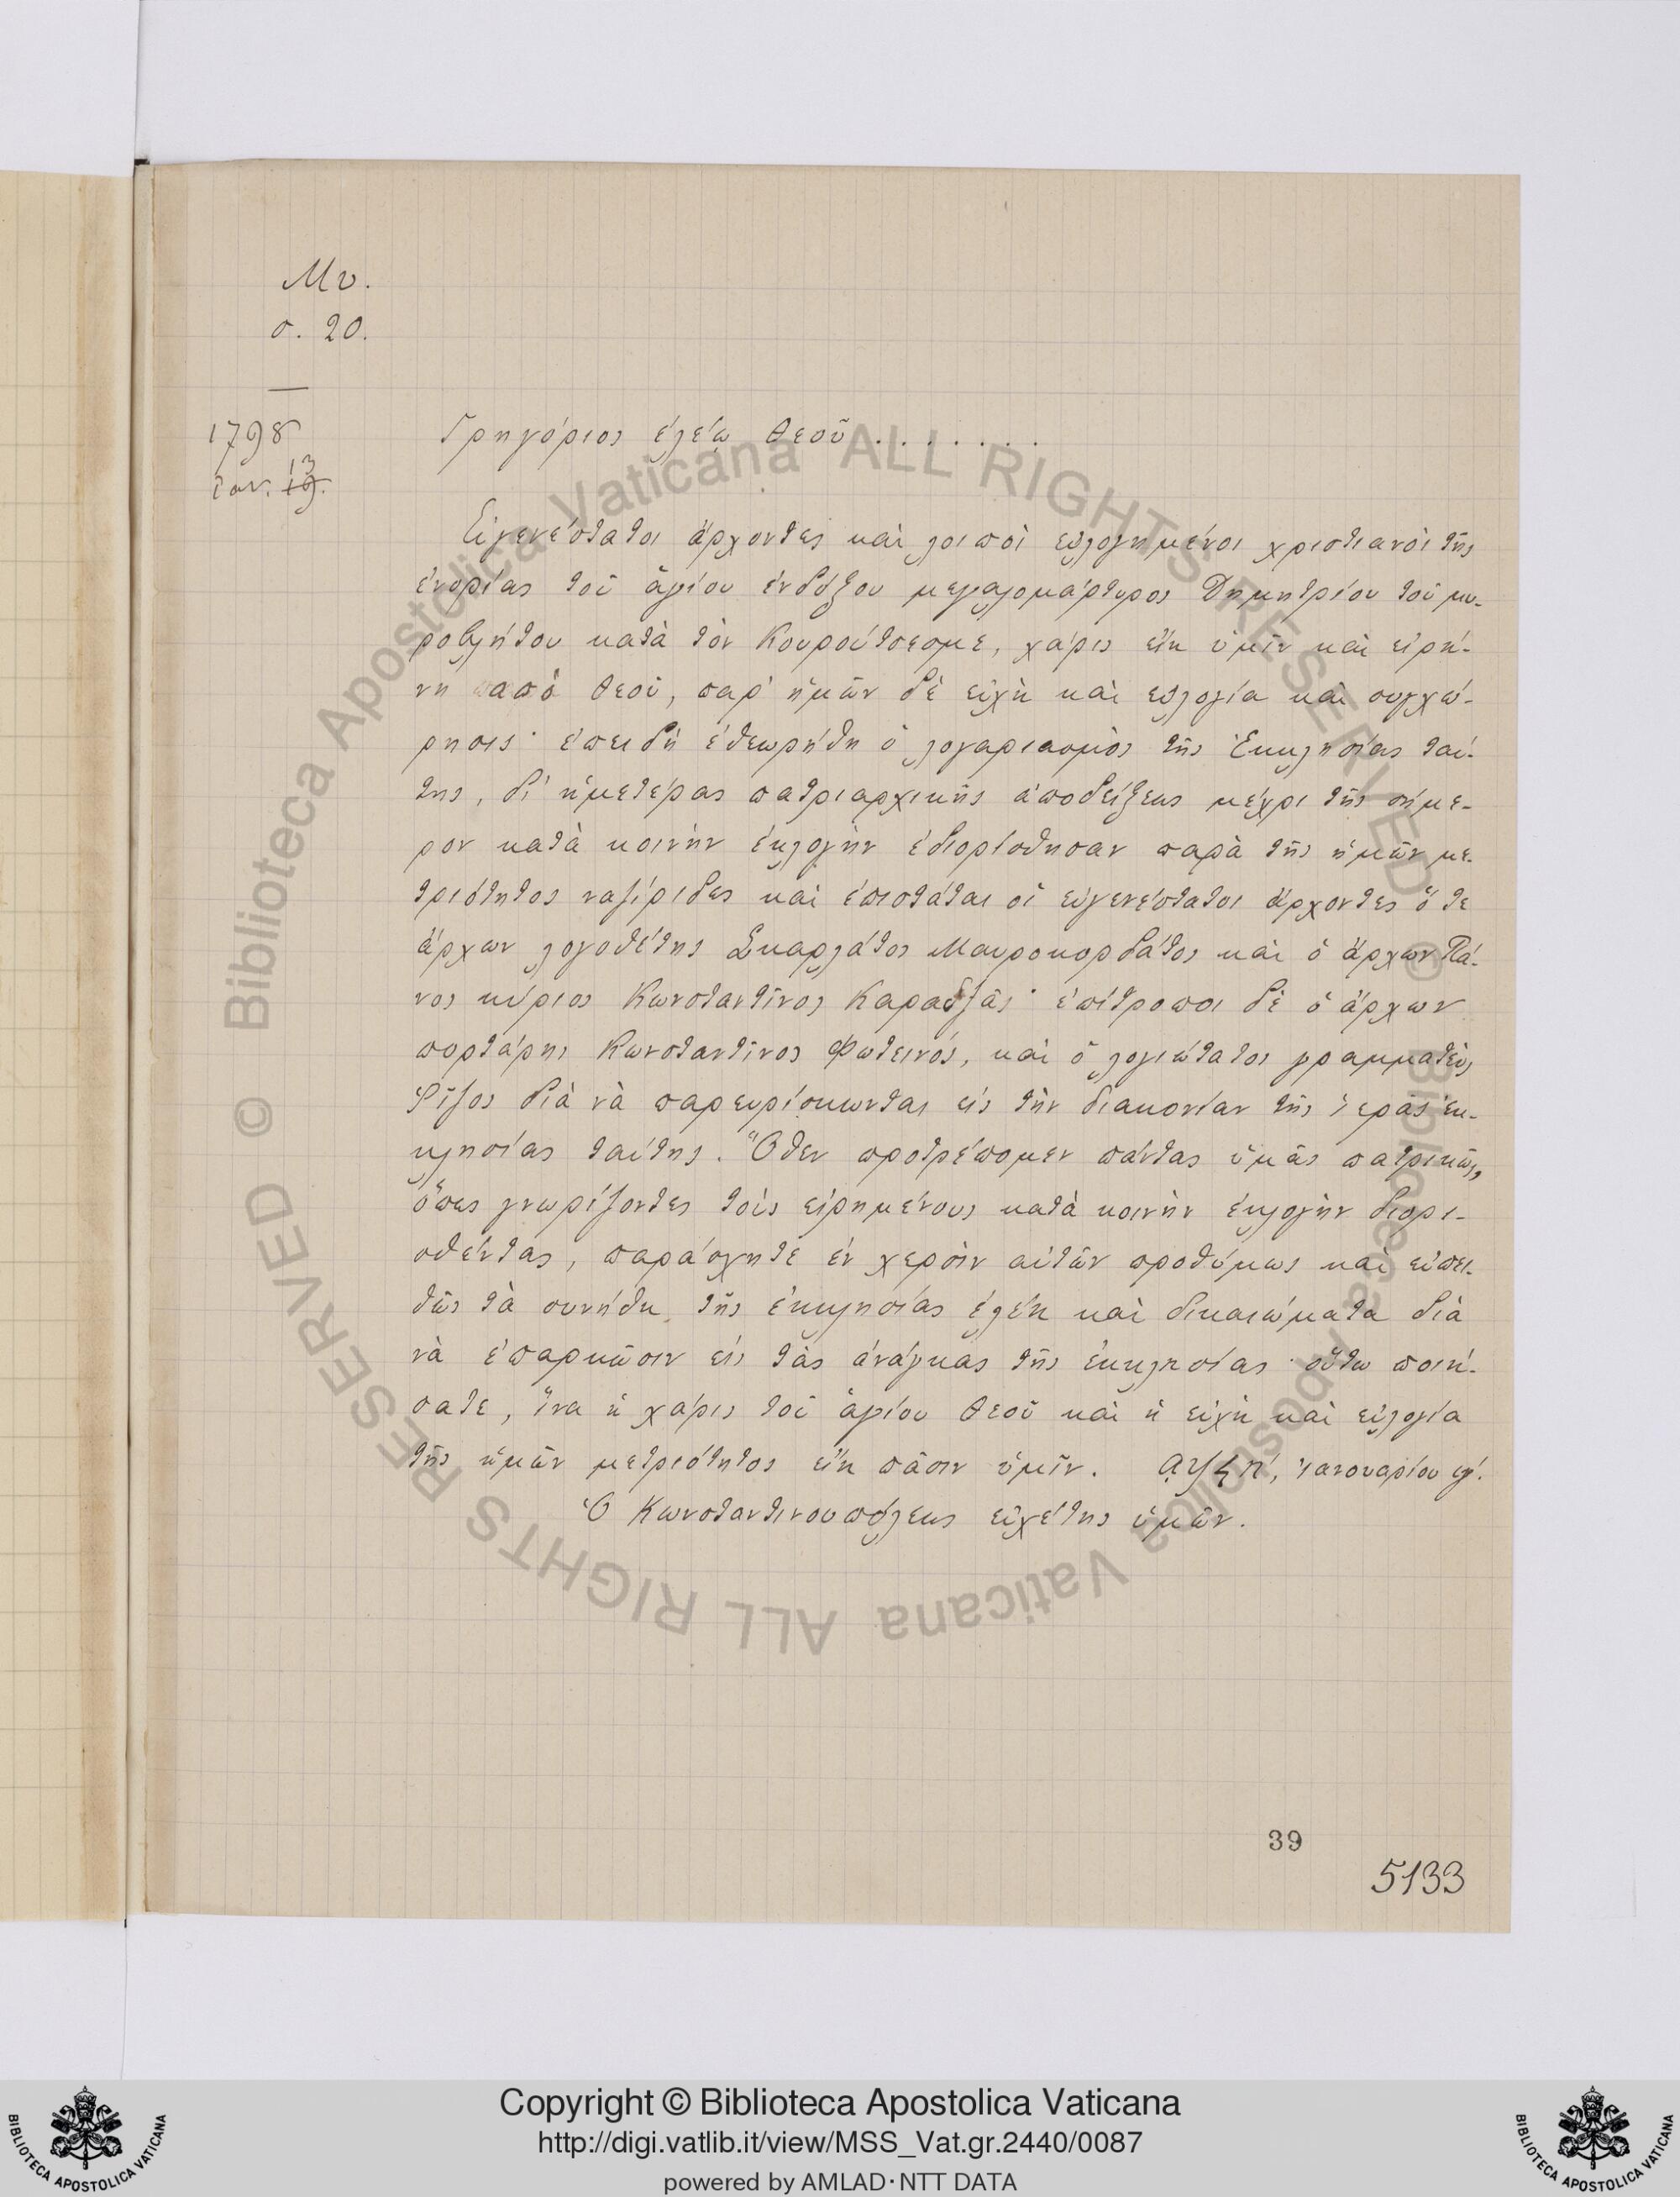 Μν.
σ. 20.
1798
Ιαν. 13
Γρηγόριος ἐλέῳ Θεοῦ . . . . . . .
Εὐγενέστατοι ἄρχοντες καὶ λοιποὶ εὐλογημένοι χριστιανοὶ τῆς
ἐνορίας τοῦ ἁγίου ἐνδόξου μεγαλομάρτυρος Δημητρίου τοῦ μυ-
ροβλήτου κατὰ τὸν Κουρούτσεσμε, χάρις εἴη ὑμῖν καὶ εἰρή-
νη ἀπὸ Θεοῦ, παρ' ἡμῶν δὲ εὐχὴ καὶ εὐλογία καὶ συγχώ-
ρησις· ἐπειδὴ ἐθεωρήθη ὁ λογαριασμὸς τῆς Ἐκκλησίας ταύ-
της, δι' ἡμετέρας πατριαρχικῆς ἀποδείξεως μέχρι τῆς σήμε-
ρον κατὰ κοινὴν ἐκλογὴν ἐδιορίσθησαν παρὰ τῆς ἡμῶν με-
τριότητος ναζίριδες καὶ ἐπιστάται οἱ εὐγενέστατοι ἄρχοντες ὅ τε
ἄρχων λογοθέτης Σκαρλάτος Μαυροκορδάτος καὶ ὁ ἄρχων Πά-
νος κύριος Κωνσταντῖνος Καρατζᾶς· ἐπίτροποι δὲ ὁ ἄρχων
πορτάρης Κωνσταντῖνος Φωτεινός, καὶ ὁ λογιώτατος γραμματεὺς
Ῥῖζος διὰ νὰ παρευρίσκωνται εἰς τὴν διακονίαν τῆς ἱερᾶς ἐκ-
κλησίας ταύτης. Ὅθεν προτρέπομεν πάντας ὑμᾶς πατρικῶς,
ὅπως γνωρίζοντες τοὺς εἰρημένους κατὰ κοινὴν ἐκλογὴν διορι-
σθέντας, παράσχητε ἐν χερσὶν αὐτῶν προθύμως καὶ εὐπει-
θῶς τὰ συνήθη τῆς ἐκκλησίας ἐλέη καὶ δικαιώματα διὰ
νὰ ἐπαρκῶσιν εἰς τὰς ἀνάγκας τῆς ἐκκλησίας· οὕτω ποιή-
σατε, ἵνα ἡ χάρις τοῦ ἁγίου Θεοῦ καὶ ἡ εὐχὴ καὶ εὐλογία
τῆς ἡμῶν μετριότητος εἴη πᾶσιν ὑμῖν. Ἰανουαρίου ιγ'.
Ὁ Κωνσταντινουπόλεως εὐχέτης ὑμῶν.
39
5133
© Biblioteca Apostolica Vaticana ALL RIGHTS RESERVED © Biblioteca Apostolica Vaticana ALL RIGHTS RESERVED
Copyright © Biblioteca Apostolica Vaticana
http://digi.vatlib.it/view/MSS_Vat.gr.2440/0087
powered by AMLAD·NTT DATA
BIBLIOTECA APOSTOLICA VATICANA
BIBLIOTECA APOSTOLICA VATICANA